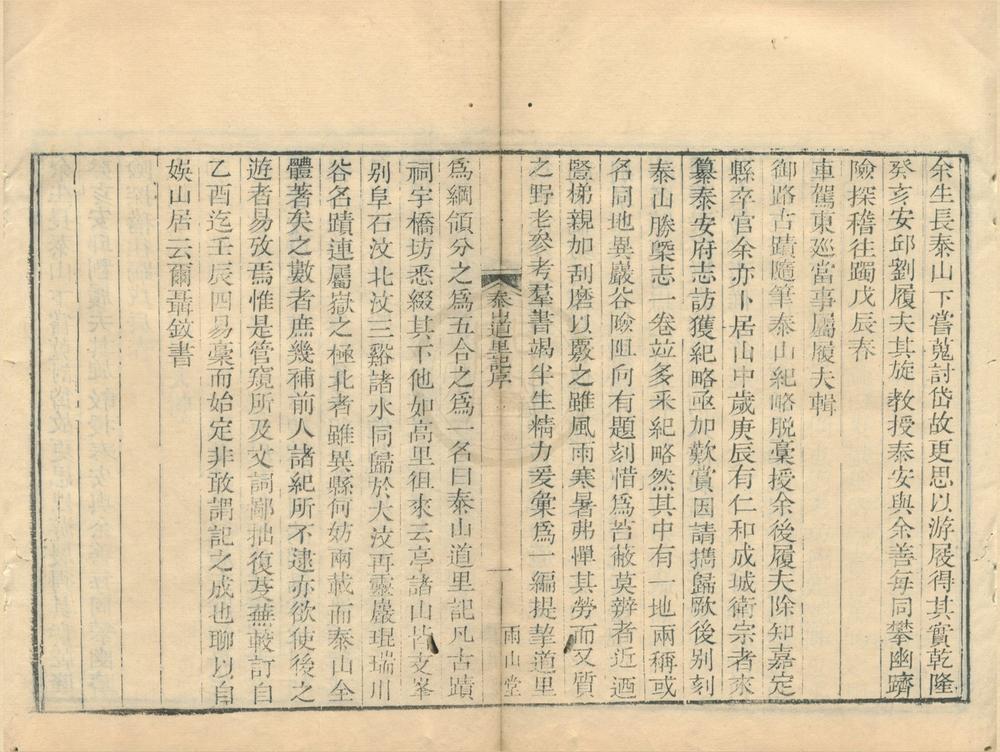 余生長泰山下嘗蒐討岱故更思以游屐得其實乾隆
癸亥安邱劉履夫其旋教授泰安與余善每同攀幽躋
險探稽往躅戊辰春
車駕東廵當事屬履夫輯
御路古蹟隨筆泰山紀略脱稾授余後履夫除知嘉定
縣卒官余亦卜居山中歲庚辰有仁和成城衛宗者來
纂泰安府志訪獲紀略亟加歎賞因請攜歸歟後别刻
泰山勝槩志一卷竝多采紀略然其中有一地兩稱或
名同地異巖谷險阻向有題刻惜爲苔蔽莫辨者近迺
豎梯親加刮磨以覈之雖風雨寒暑弗憚其勞而又質
之野老參考羣書竭半生精力爰彙爲一編提挈道里
泰山道里記序
一
雨山堂
爲綱領分之爲五合之爲一名曰泰山道里記凡古蹟
祠宇橋坊悉綴其下他如高里徂來云亭諸山皆支峯
别阜石汶北汶三谿諸水同歸於大汶再靈巖琨瑞川
谷名蹟連屬嶽之極北者雖異縣何妨兩載而泰山全
體著矣之數者庶幾補前人諸紀所不逮亦欲使後之
遊者易攷焉惟是管窺所及文詞鄙拙復芟蕪較訂自
乙酉迄壬辰四易稾而始定非敢謂記之成也聊以自
娛山居云爾聶鈫書